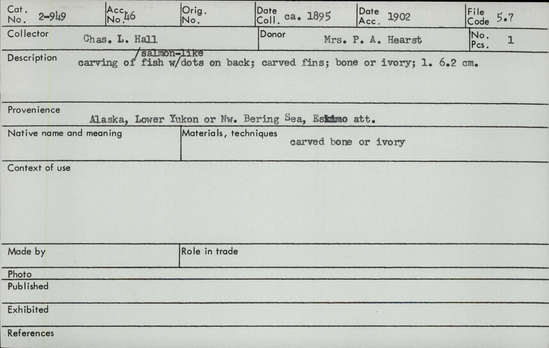 Cat. No. 2-949 Acc. No. 46 Orig. No. Date Coll. ca. 1895 Date Acc. 1902 File Code 5.7
Collector Chas. L. Hall Donor Mrs. P. A. Hearst No. Pcs. 1
Description carving of /salmon-like fish w/dots on back; carved fins; bone or ivory; l. 6.2 cm.
Provenience Alaska, Lower Yukon or Nw. Bering Sea, Eskimo att.
Native name and meaning Materials, techniques carved bone or ivory
Context of use
Made by Role in trade
Photo
Published
Exhibited
References